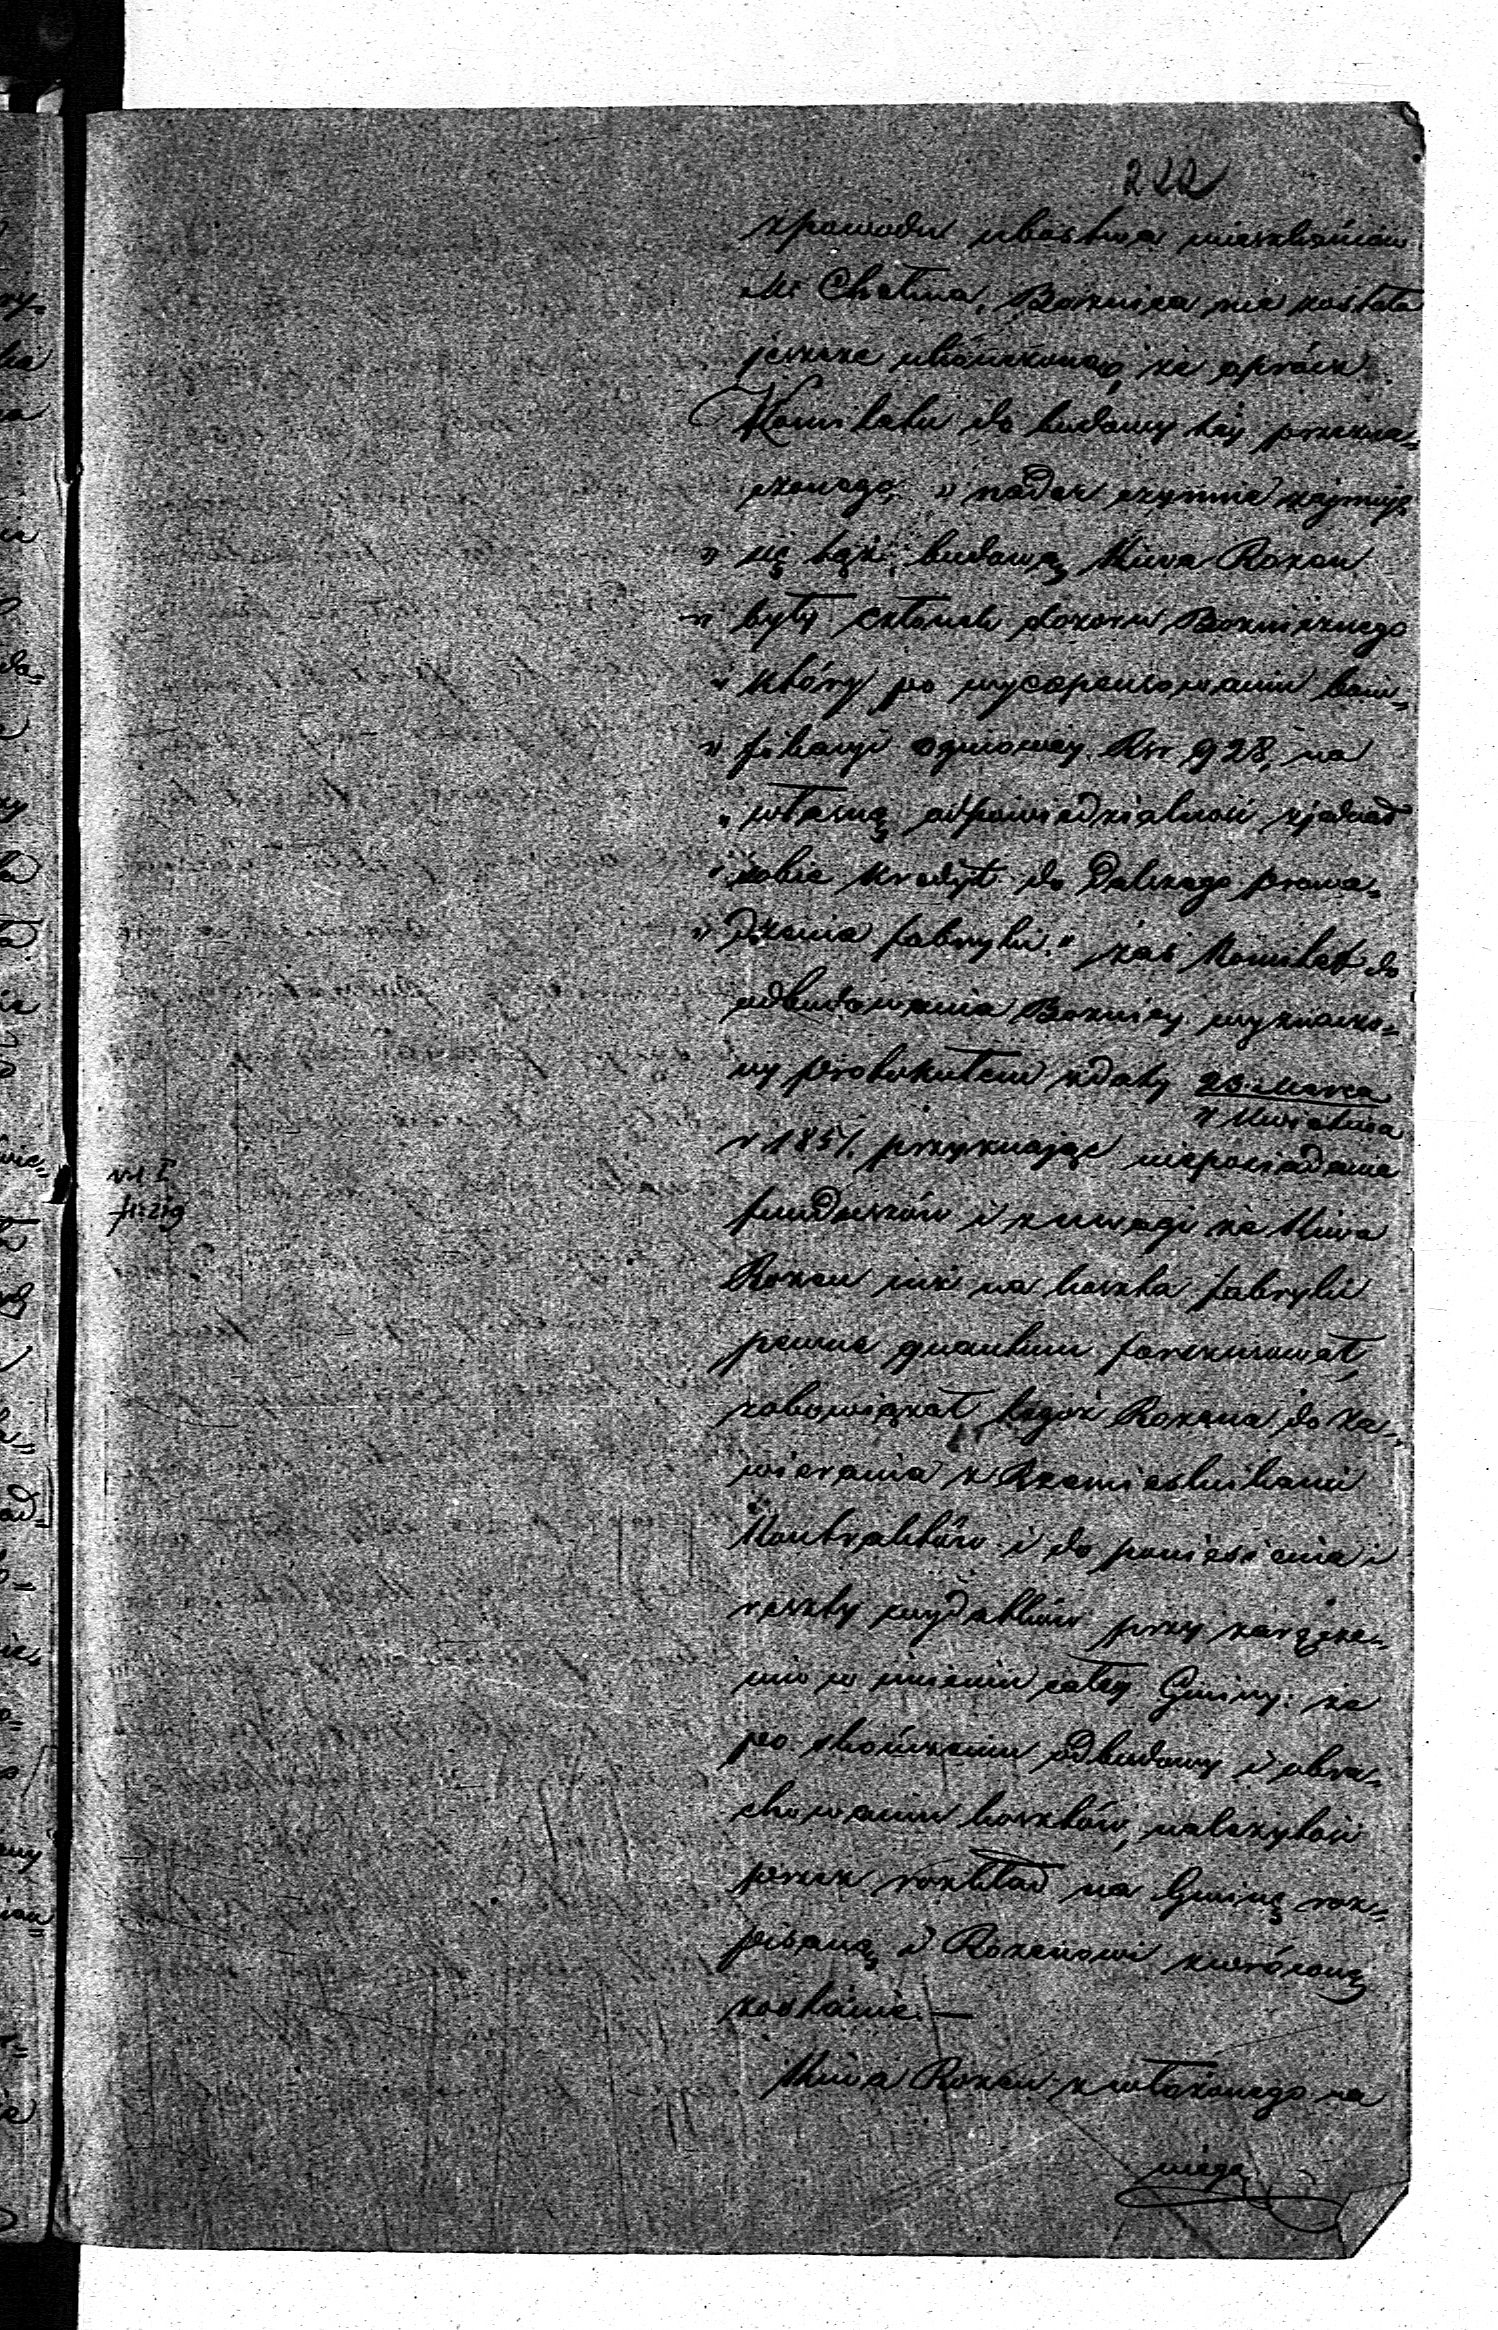 222
zpowodu ubóstwa mieszkańców
M: Chełma, Boźnica nie została
jeszcze ukończona, że oprócz
Komitetu do budowy téj przezna„
czonego, „nader czynnie zajmuje
„ się tąż budową Kiwa Rozen
„ były członek dozoru Bożniczego
„ który po wyexpensowaniu boni„
„ fikacyi ogniowey Rsr 928, na
„ własną odpowiedzialność zjednał
„ sobie kredyt do dalszego prowa„
„ dzenia fabryki." zaś Komitet do
odbudowania Boznicy wyznaczo„
ny protokułem zdaty 23 Marca
7 Kwietnia
r 1851. przyznając nieposiadanie
vol I
fo: 219
funduszów i z uwagi że Kiwa
Rozen już na koszta fabryki
pewne quantum forszusował,
zobowiązał tegoż Rozena do za„
wierania z Rzemieslnikami
Kontraktów i do poniesienia
reszty wydatków przy zaręcze„
niu w imieniu całey Gminy: że
po skończeniu odbudowy i obra„
chowaniu kosztów, należytość
przez rozkład na Gminę roz„
pisaną i Rozenowi zwróconą
zostanie. —
Kiwa Rozen z włożonego na
niego